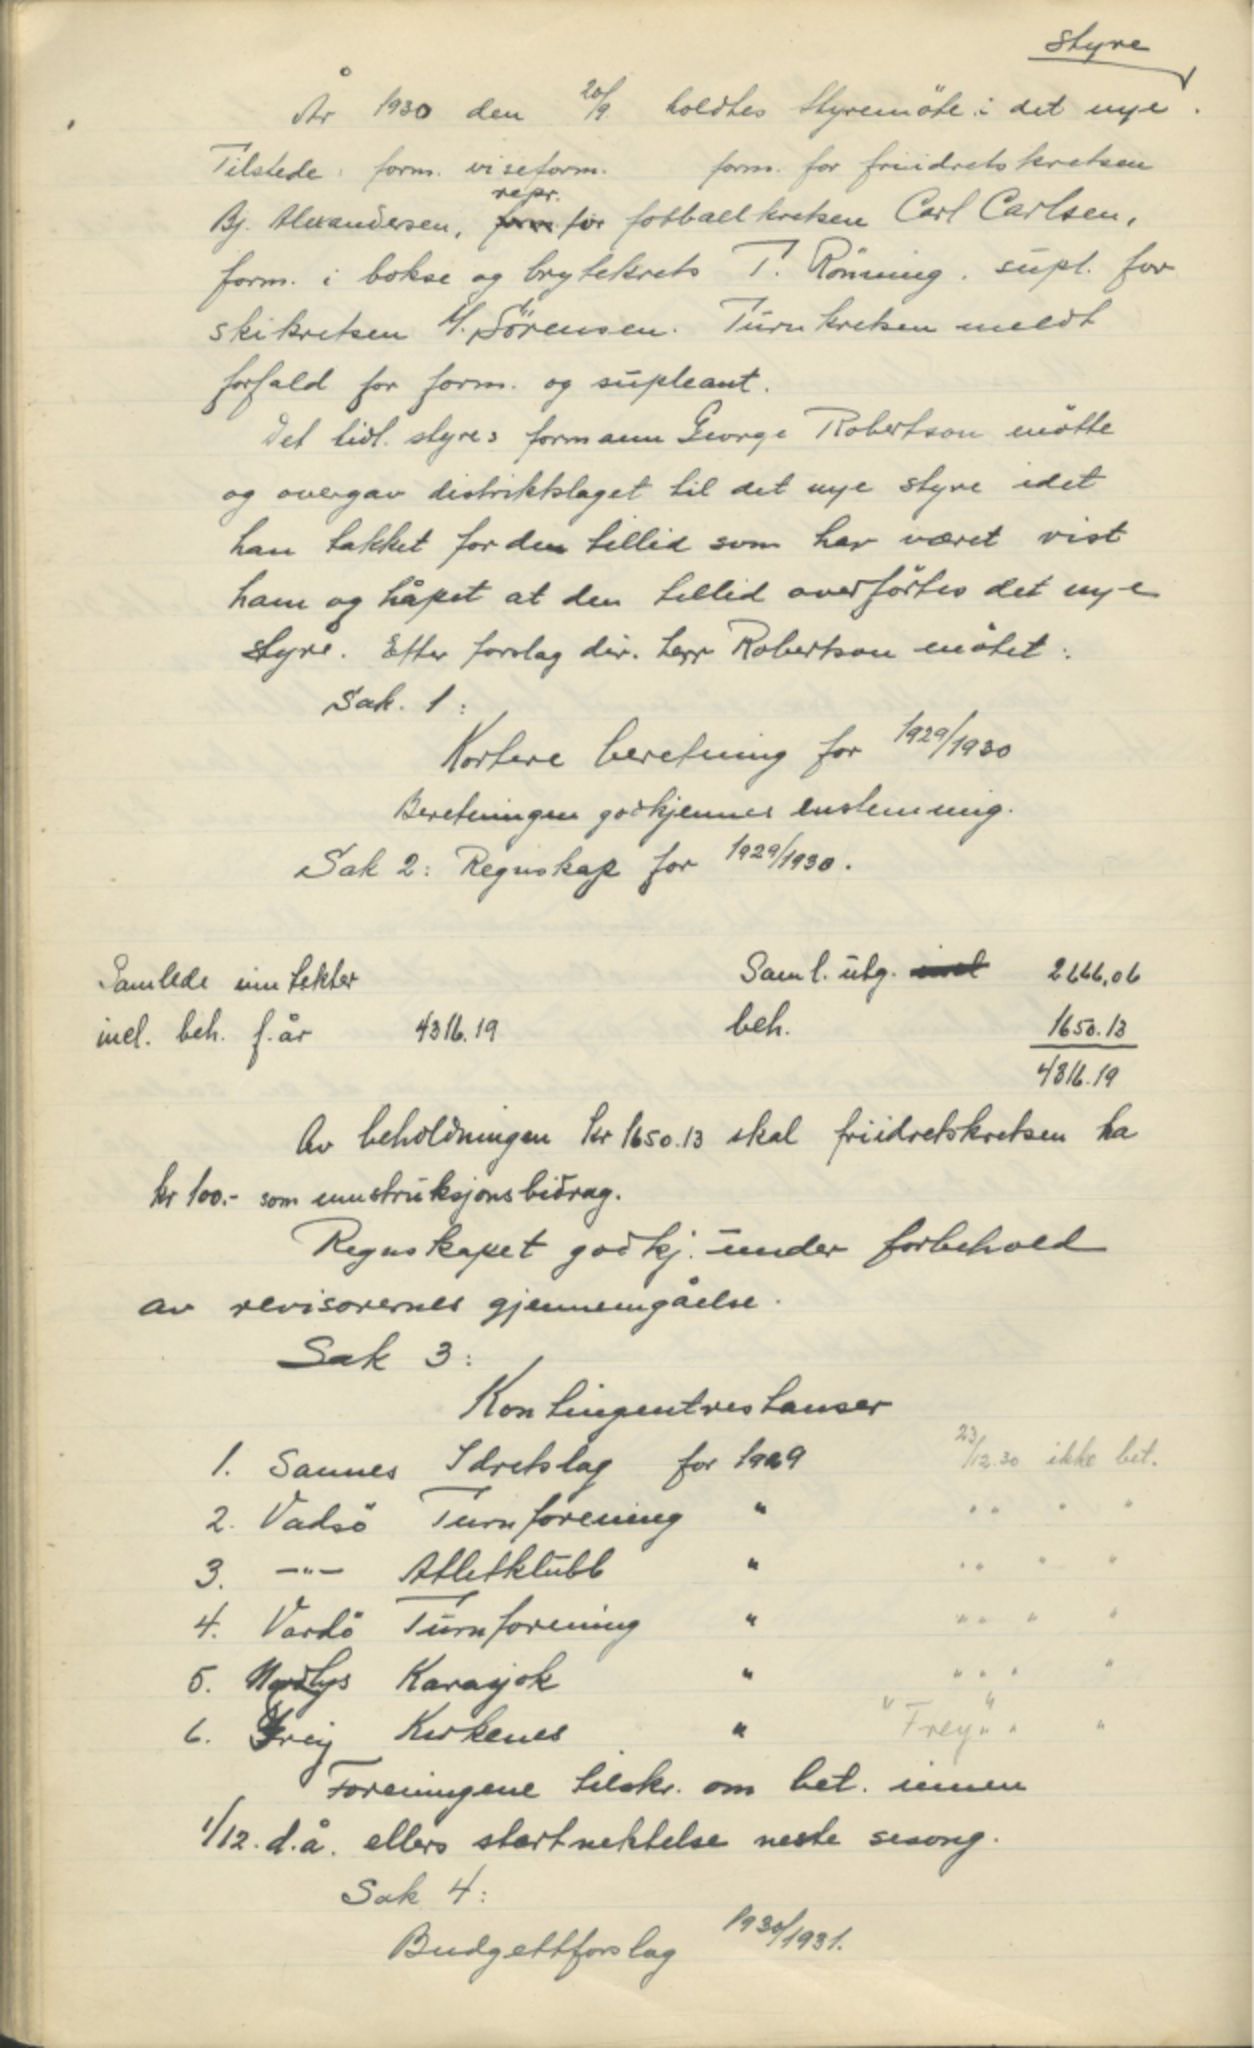 styre
År 1930 den 20/9 holdtes styremöte i det nye.
Tilstede: form. viseform. form. for friidretskretsen
Bj. Alexandersen, repr. for fotballkretsen Carl Carlsen,
form. i bokse og brytekrets T. Rönning. supl. for
skikretsen Sörensen. Turnkretsen meldt
forfald for form. og supleant.
Det tidl. styres formann George Robertson mötte
og overgav distriktslaget til det nye styre idet
han takket for den tillid som har været vist
ham og håpet at den tillid overförtes det nye
styre. Efter forslag dir. herr Robertson mötet:
Sak. 1:
Kortere beretning for 1929/1930
Beretningen godkjennes enstemmig.
Sak 2: Regnskap for 1929/1930.
Samlede inntekter Saml. utg. 2666,06
incl. beh. f. år 4316.19 beh. 1650.13
4316.19
Av beholdningen kr 1650.13 skal friidretskretsen ha
kr 100.- som innstruksjonsbidrag.
Regnskapet godkj. under forbehold
av revisorernes gjennemgåelse.
Sak 3:
Kontingentrestanser
1. Sannes Idretslag for 1929 23/12.30 ikke bet.
2. Vadsö Turnforening " " " " "
3. —"— Atletklubb " " " " "
4. Vardö Turnforening " " " " "
5. Nordlys Karasjok " " " " "
6. Frey Kirkenes " "Frey" " " "
Foreningene tilskr. om bet. innen
1/12. d.å. ellers startnektelse neste sesong.
Sak 4:
Budgettforslag 1930/1931.